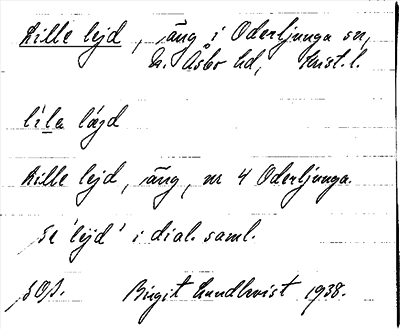 Lille lejd, äng i Oderljunga sn,
N. Åsbo hd, Krist. l.
li'la läjd
Lille lejd, äng, nr 4 Oderljunga.
Se 'lejd' i dial. saml.
Birgit Lundkvist 1938.